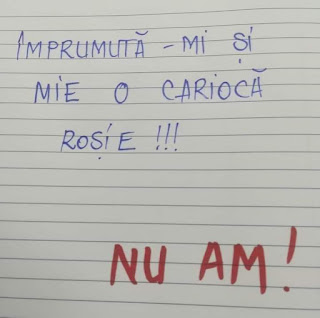 ÎMPRUMUTĂ - MI ȘI
MIE O CARIOCĂ
ROȘIE !!!
NU AM!